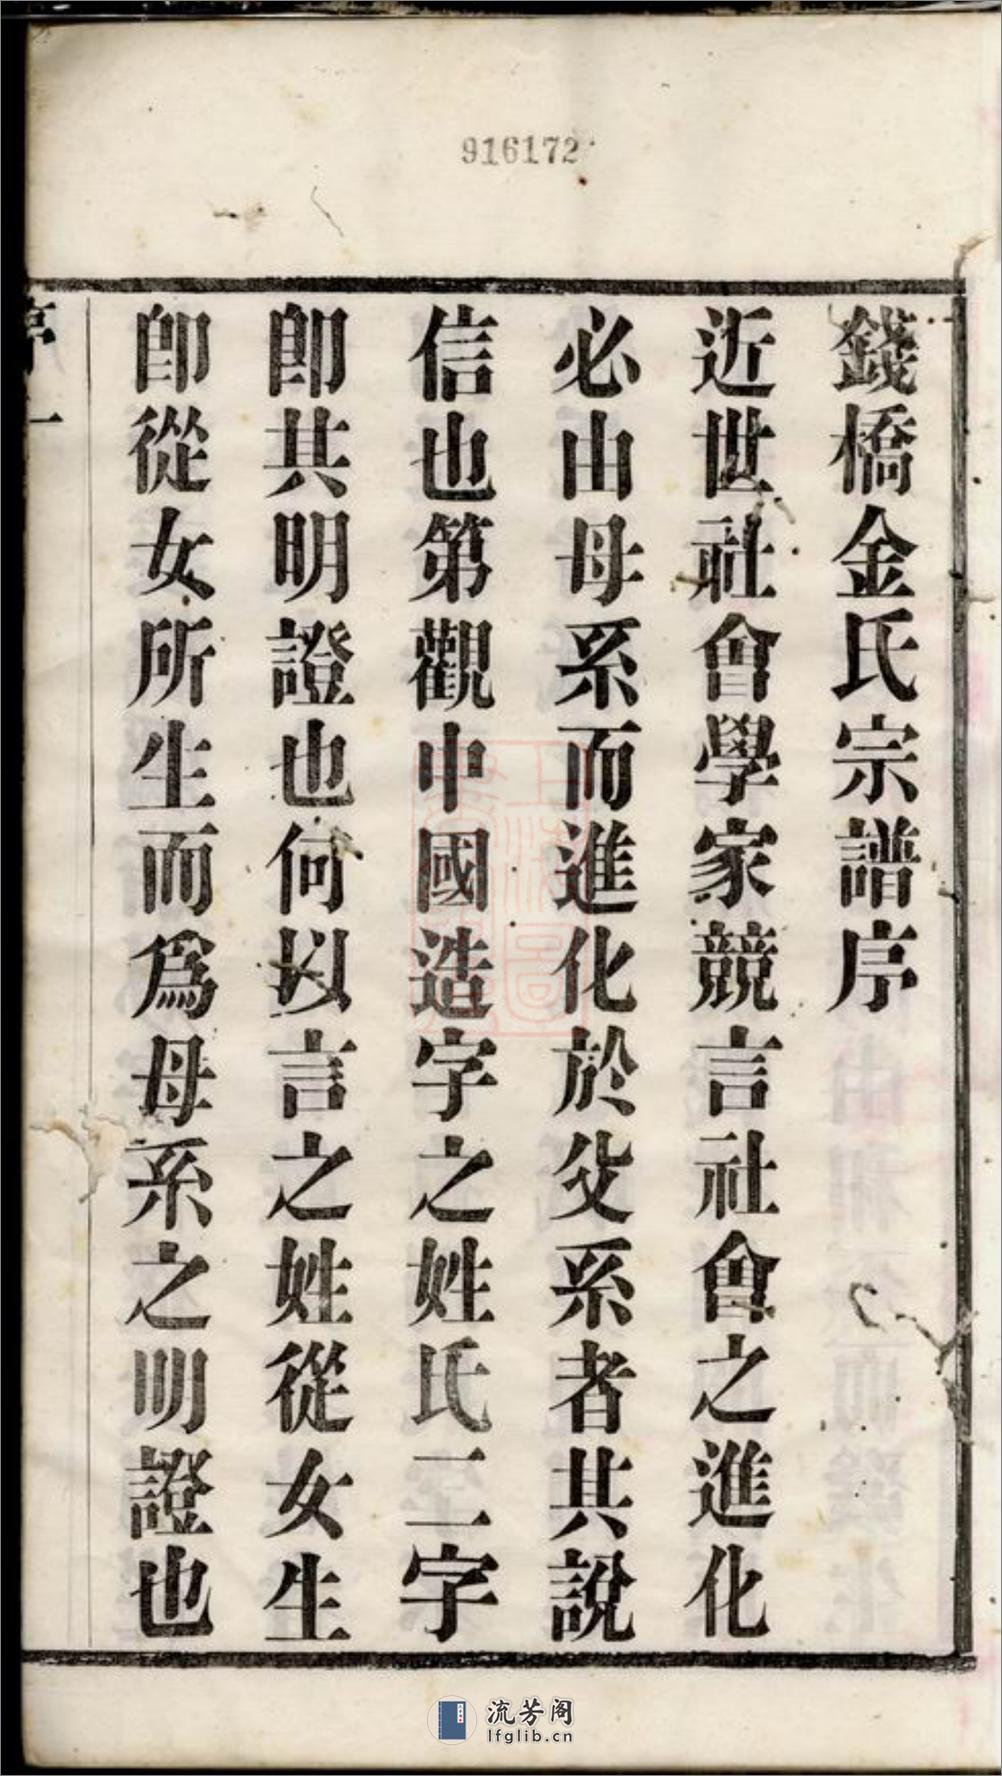 916172
錢橋金氏宗譜序
近世社會學家競言社會之進化
必由母系而進化於父系者其說
信也第觀中國造字之姓氏二字
卽其明證也何以言之姓從女生
卽從女所生而爲母系之明證也
序
流芳阁
lfglib.cn